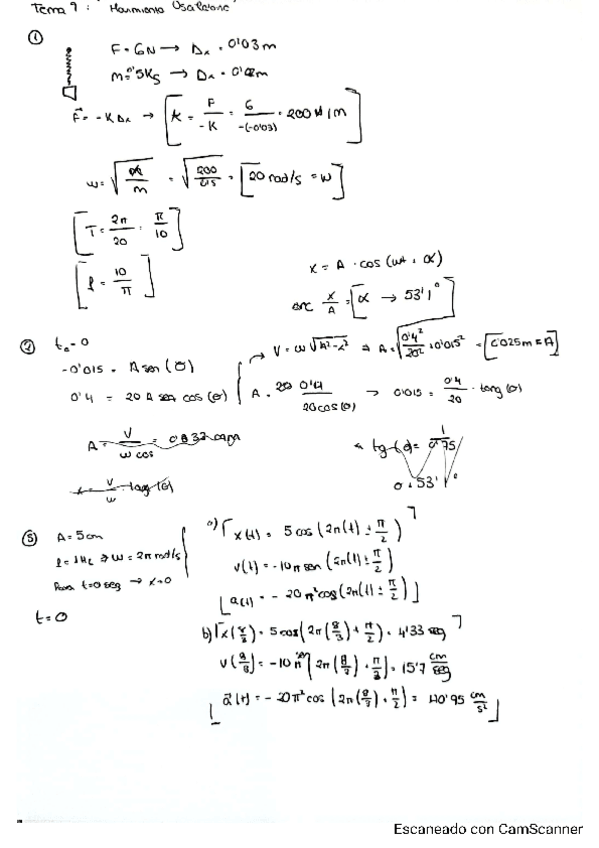 Tema 9 : Movimiento Oscilatorio
①
F = 6N → Dx = 0'03m
m=0'5Kg → Dx = 0'02m
F = -K Dx → [ K = F/-K = 6/-(-0'03) = 200 N/m ]
ω = √(K/m) = √(200/0'5) = [ 20 rad/s = ω ]
[ T = 2π/20 = π/10 ]
[ f = 10/π ]
x = A · cos (ωt + α)
arc x/A = [ α → 53'1° ]
② t₀ = 0
-0'015 = A sen (θ)
0'4 = 20 A cos (θ)
→ V = ω √(A²-x²) ⇒ A = √(0'4²/20² + 0'015²) = [0'025m = A]
A = 0'4/20cos(θ) → 0'015 = 0'4/20 · tang (θ)
A = V/ω cos
tg (θ) = 1/0'75
θ = 53'1°
x = V/ω · tag (θ)
⑤ A = 5cm
f = 1Hz → ω = 2π rad/s
Para t=0 seg → x=0
t = 0
a) [ x(t) = 5 cos (2π(t) ± π/2)
v(t) = -10π sen (2π(t) ± π/2)
a(t) = - 20π² cos (2π(t) ± π/2) ]
b) [ x(8/3) = 5 cos (2π (8/3) + π/2) = 4'33 seg
v(8/3) = -10π [2π (8/3) + π/2] = 15'7 cm/seg
a(t) = - 20π² cos (2π (8/3) + π/2) = 170'95 cm/s² ]
Escaneado con CamScanner